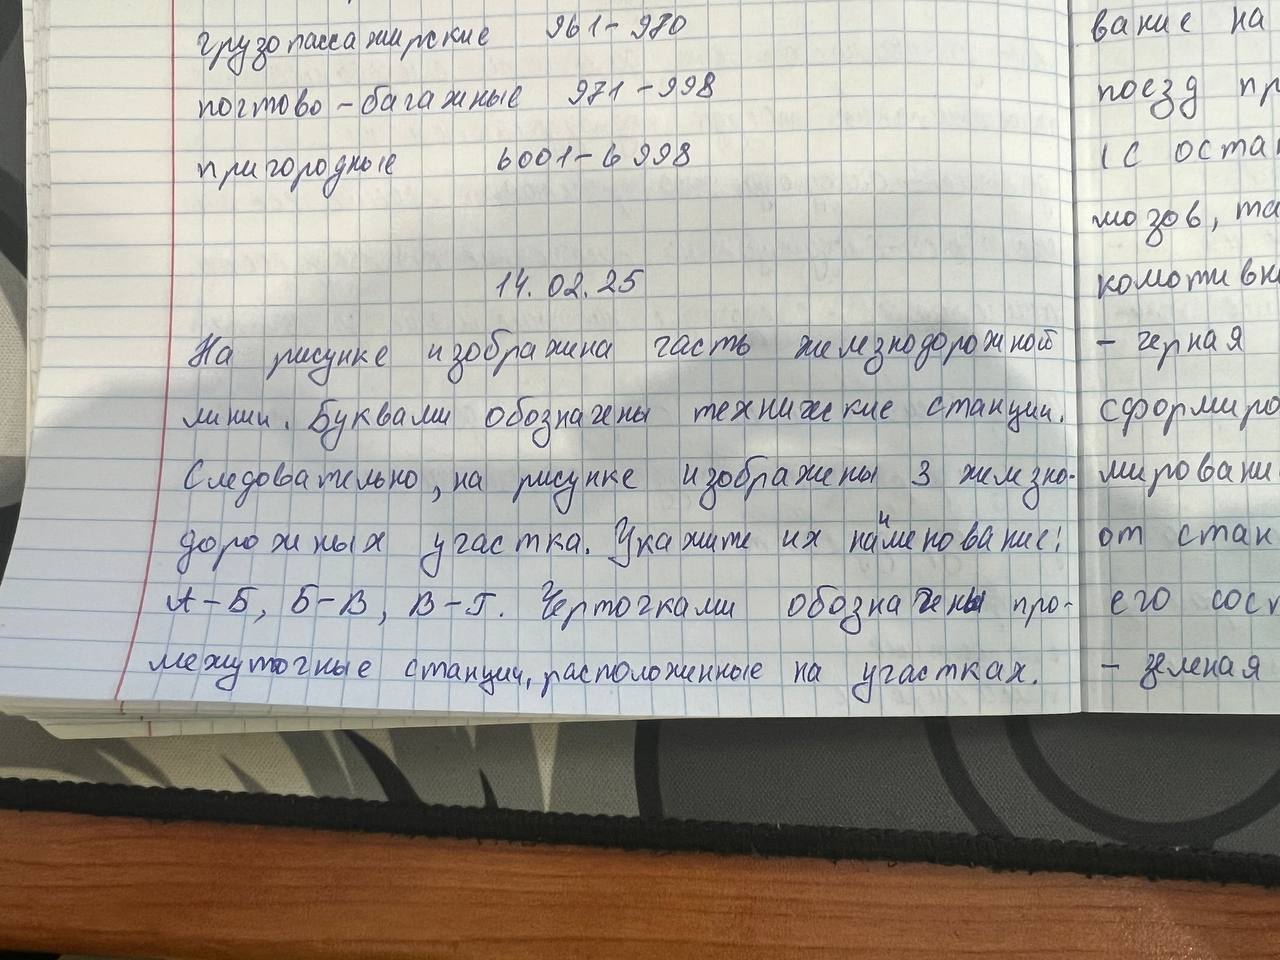 грузопассажирские 961-970
почтово-багажные 971-998
пригородные 6001-6998
14.02.25
На рисунке изображена часть железнодорожной
линии. Буквами обозначены технические станции.
Следовательно, на рисунке изображены 3 железно-
дорожных участка. Укажите их наименование:
А-Б, Б-В, В-Г. Черточками обозначены про-
межуточные станции, расположенные на участках.
вание на
поезд пр
(с оста
мозов, та
комотивн
- черная
сформиро
мировани
от стан
его сос
- зеленая